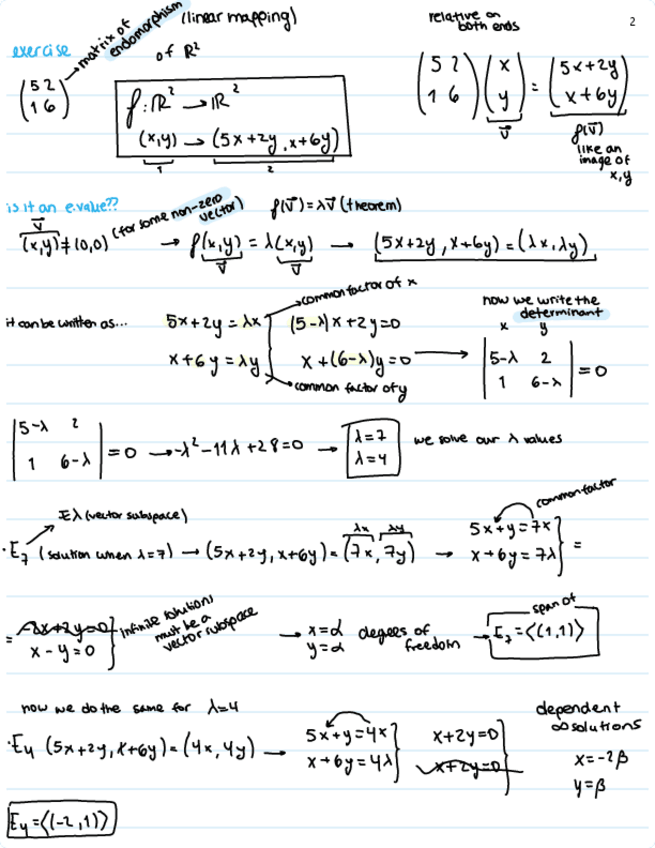 2
exercise
matrix of endomorphism (linear mapping)
of R²
(5 2
1 6)
f: ℝ² → ℝ²
(x,y) → (5x+2y, x+6y)
1 2
relative on both ends
(5 2
1 6) (x
y) = (5x+2y
x+6y)
v⃗ f(v⃗)
like an image of x,y
is it an e.value??
v⃗
(x,y) ≠ (0,0) (for some non-zero vector) f(v⃗)=λv⃗ (theorem)
→ f(x,y) = λ(x,y) → (5x+2y, x+6y) = (λx, λy)
v⃗ v⃗
it can be written as...
common factor of x
5x+2y = λx (5-λ)x+2y=0
x+6y = λy x+(6-λ)y=0 →
common factor of y
now we write the determinant
x y
|5-λ 2
1 6-λ| = 0
|5-λ 2
1 6-λ| = 0 → λ²-11λ+28=0 → λ=7
λ=4
we solve our λ values
Eλ (vector subspace)
common factor
·E₇ (solution when λ=7) → (5x+2y, x+6y) = (7x, 7y) → 5x+y=7x
λx λy
x+6y=7λ } =
= -2x+2y=0
x-y=0 } infinite solutions must be a vector subspace
→ x=α
y=α degees of freedom → E₇=⟨(1,1)⟩
span of
now we do the same for λ=4
·E₄ (5x+2y, x+6y) = (4x, 4y) → 5x+y=4x
x+6y=4λ } x+2y=0
x+2y=0 }
dependent
∞ solutions
x=-2β
y=β
E₄=⟨(-2,1)⟩